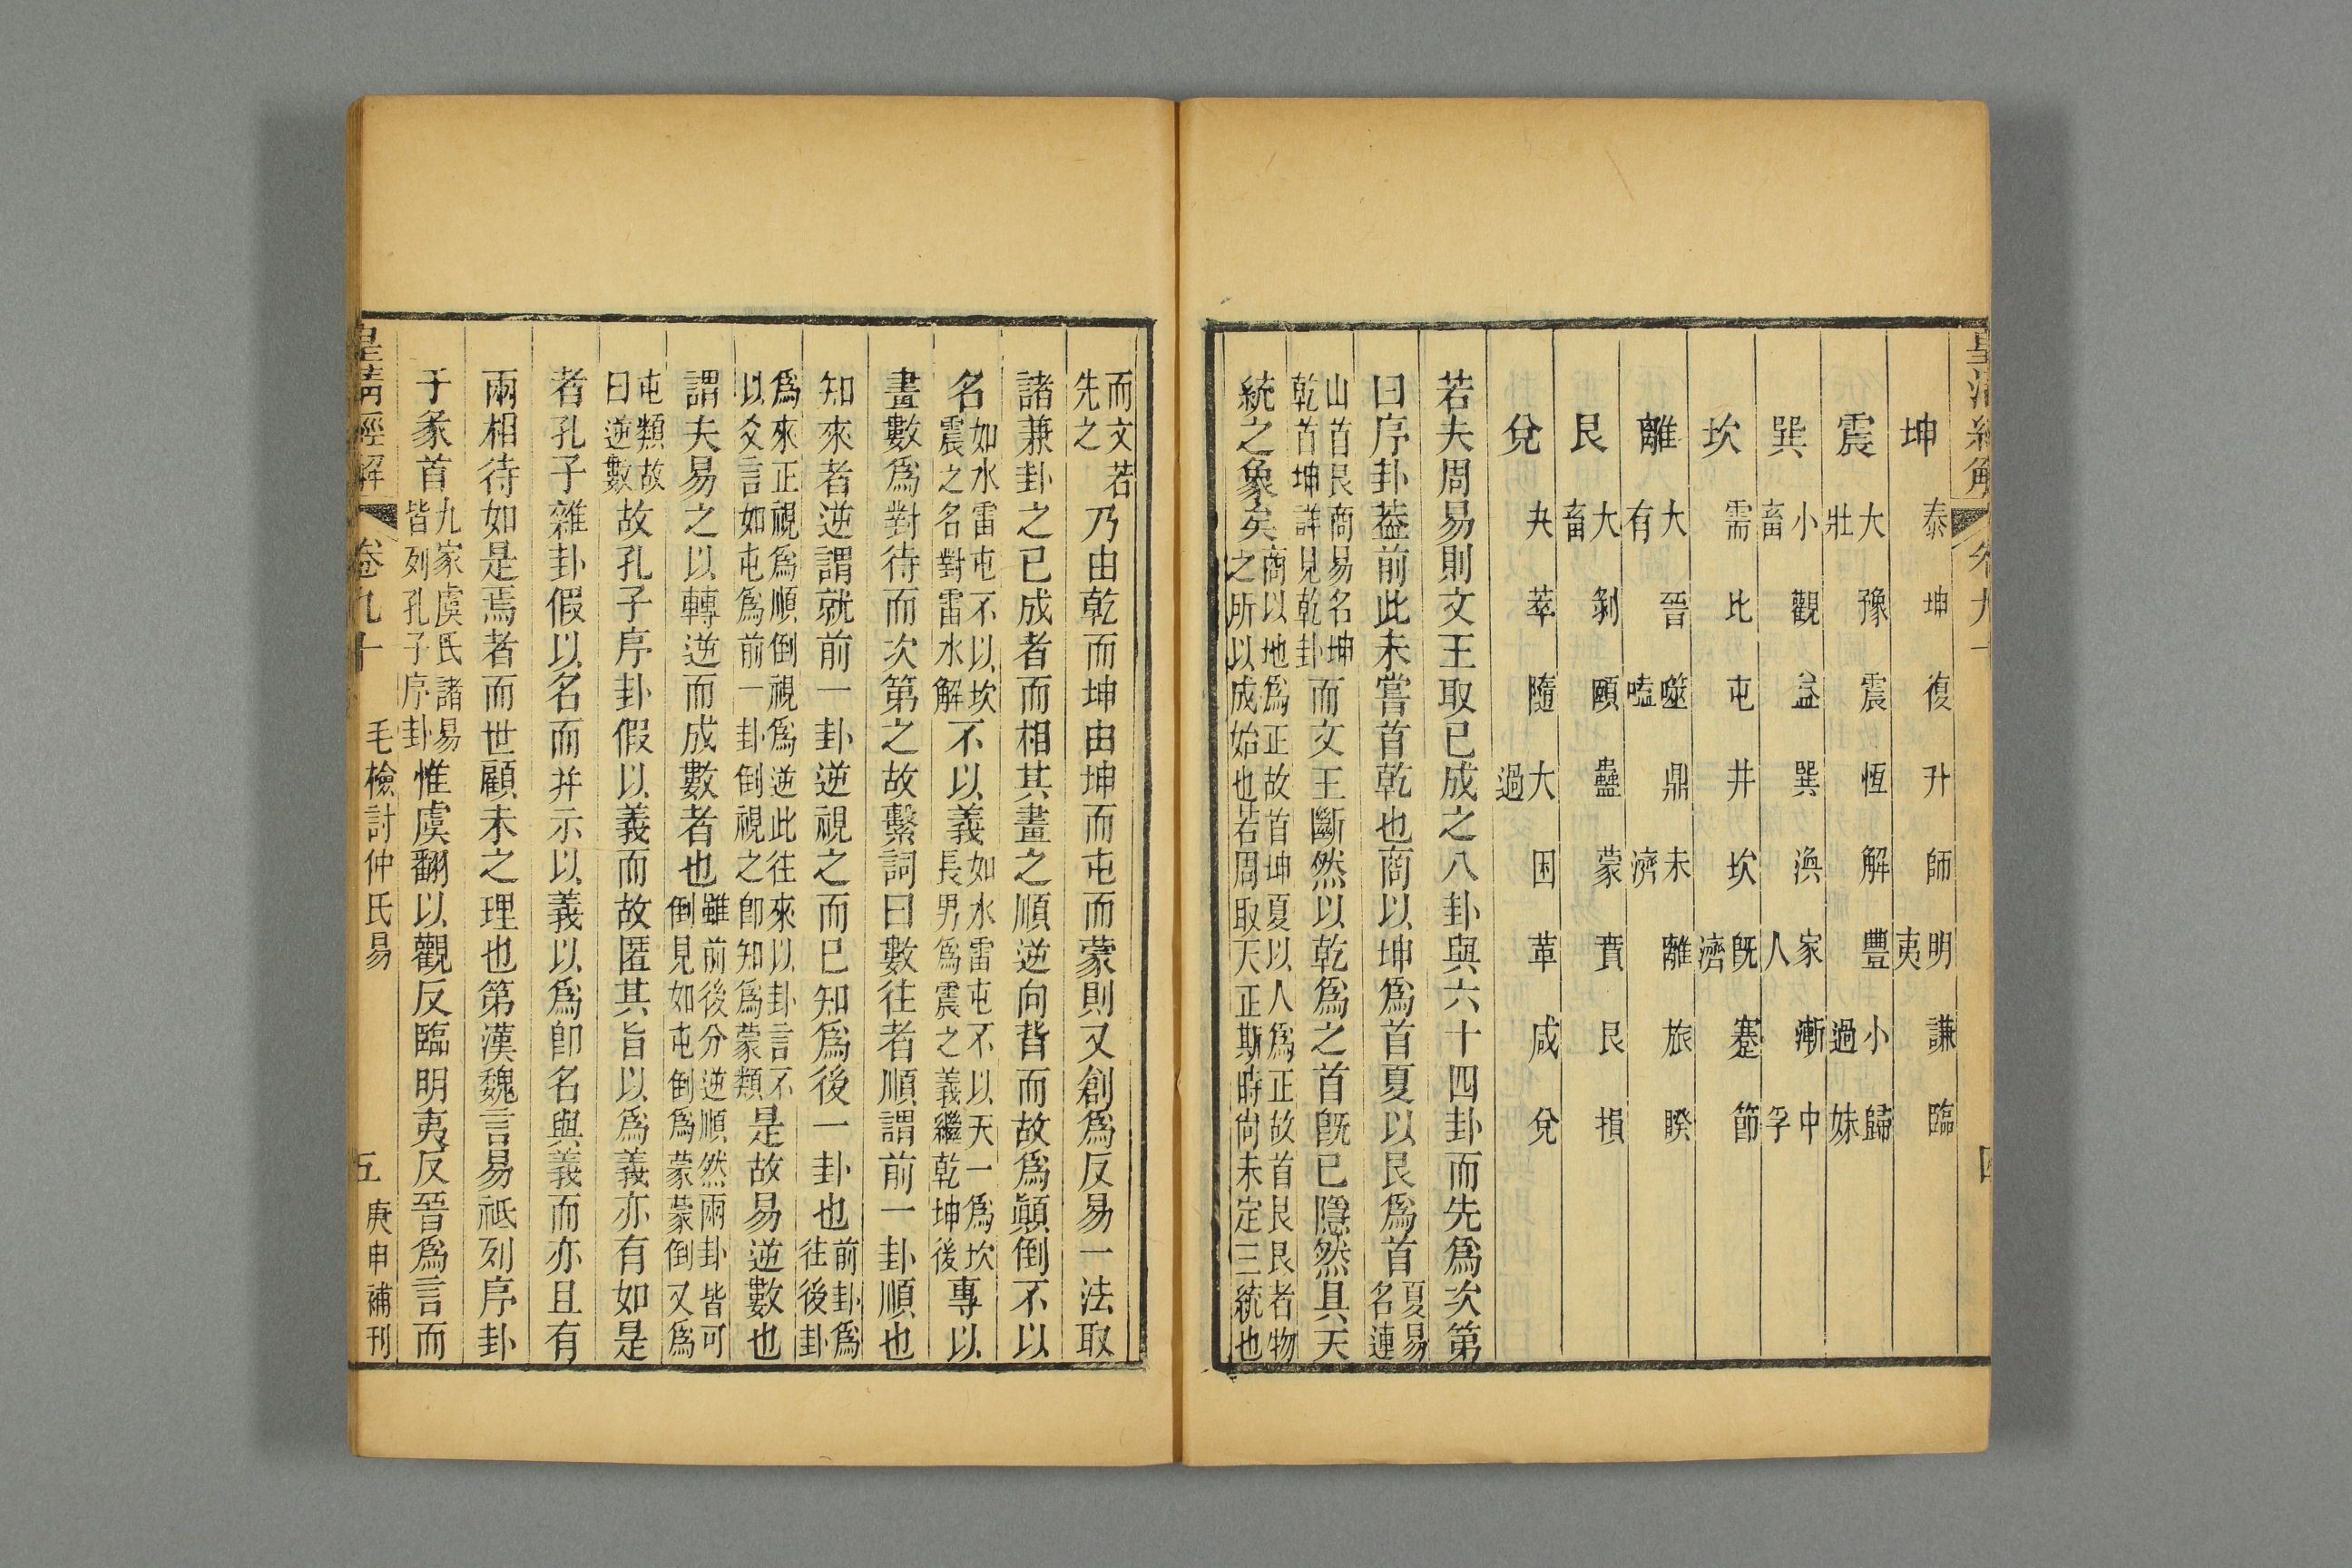 皇清經解 卷九十 四
坤 泰 坤 復 升 師 明夷 謙 臨
震 大壯 豫 震 恆 解 豐 小過 歸妹
巽 小畜 觀 益 巽 渙 家人 漸 中孚
坎 需 比 屯 井 坎 旣濟 蹇 節
離 大有 晉 噬嗑 鼎 未濟 離 旅 睽
艮 大畜 剝 頤 蠱 蒙 賁 艮 損
兌 夬 萃 隨 大過 困 革 咸 兌
若夫周易則文王取已成之八卦與六十四卦而先爲次第
曰序卦葢前此未嘗首乾也商以坤爲首夏以艮爲首夏易名連
山首艮商易名坤乾首坤詳見乾卦而文王斷然以乾爲之首旣已隱然具天
統之象矣商以地爲正故首坤夏以人爲正故首艮艮者物之所以成始也若周取天正斯時尙未定三統也
而文若先之乃由乾而坤由坤而屯而蒙則又創爲反易一法取
諸兼卦之已成者而相其畫之順逆向背而故爲顚倒不以
名如水雷屯不以坎震之名對雷水解不以義如水雷屯不以天一爲坎長男爲震之義繼乾坤後專以
畫數爲對待而次第之故繫詞曰數往者順謂前一卦順也
知來者逆謂就前一卦逆視之而已知爲後一卦也前卦爲往後卦
爲來正視爲順倒視爲逆此往來以卦言不以爻言如屯爲前一卦倒視之卽知爲蒙類是故易逆數也
謂夫易之以轉逆而成數者也雖前後分逆順然兩卦皆可倒見如屯倒爲蒙蒙倒又爲
屯類故曰逆數故孔子序卦假以義而故匿其旨以爲義亦有如是
者孔子雜卦假以名而并示以義以爲卽名與義而亦且有
兩相待如是焉者而世顧未之理也第漢魏言易祗列序卦
于彖首九家虞氏諸易皆列孔子序卦惟虞翻以觀反臨明夷反晉爲言而
皇清經解 卷九十 毛檢討仲氏易 五 庚申補刊